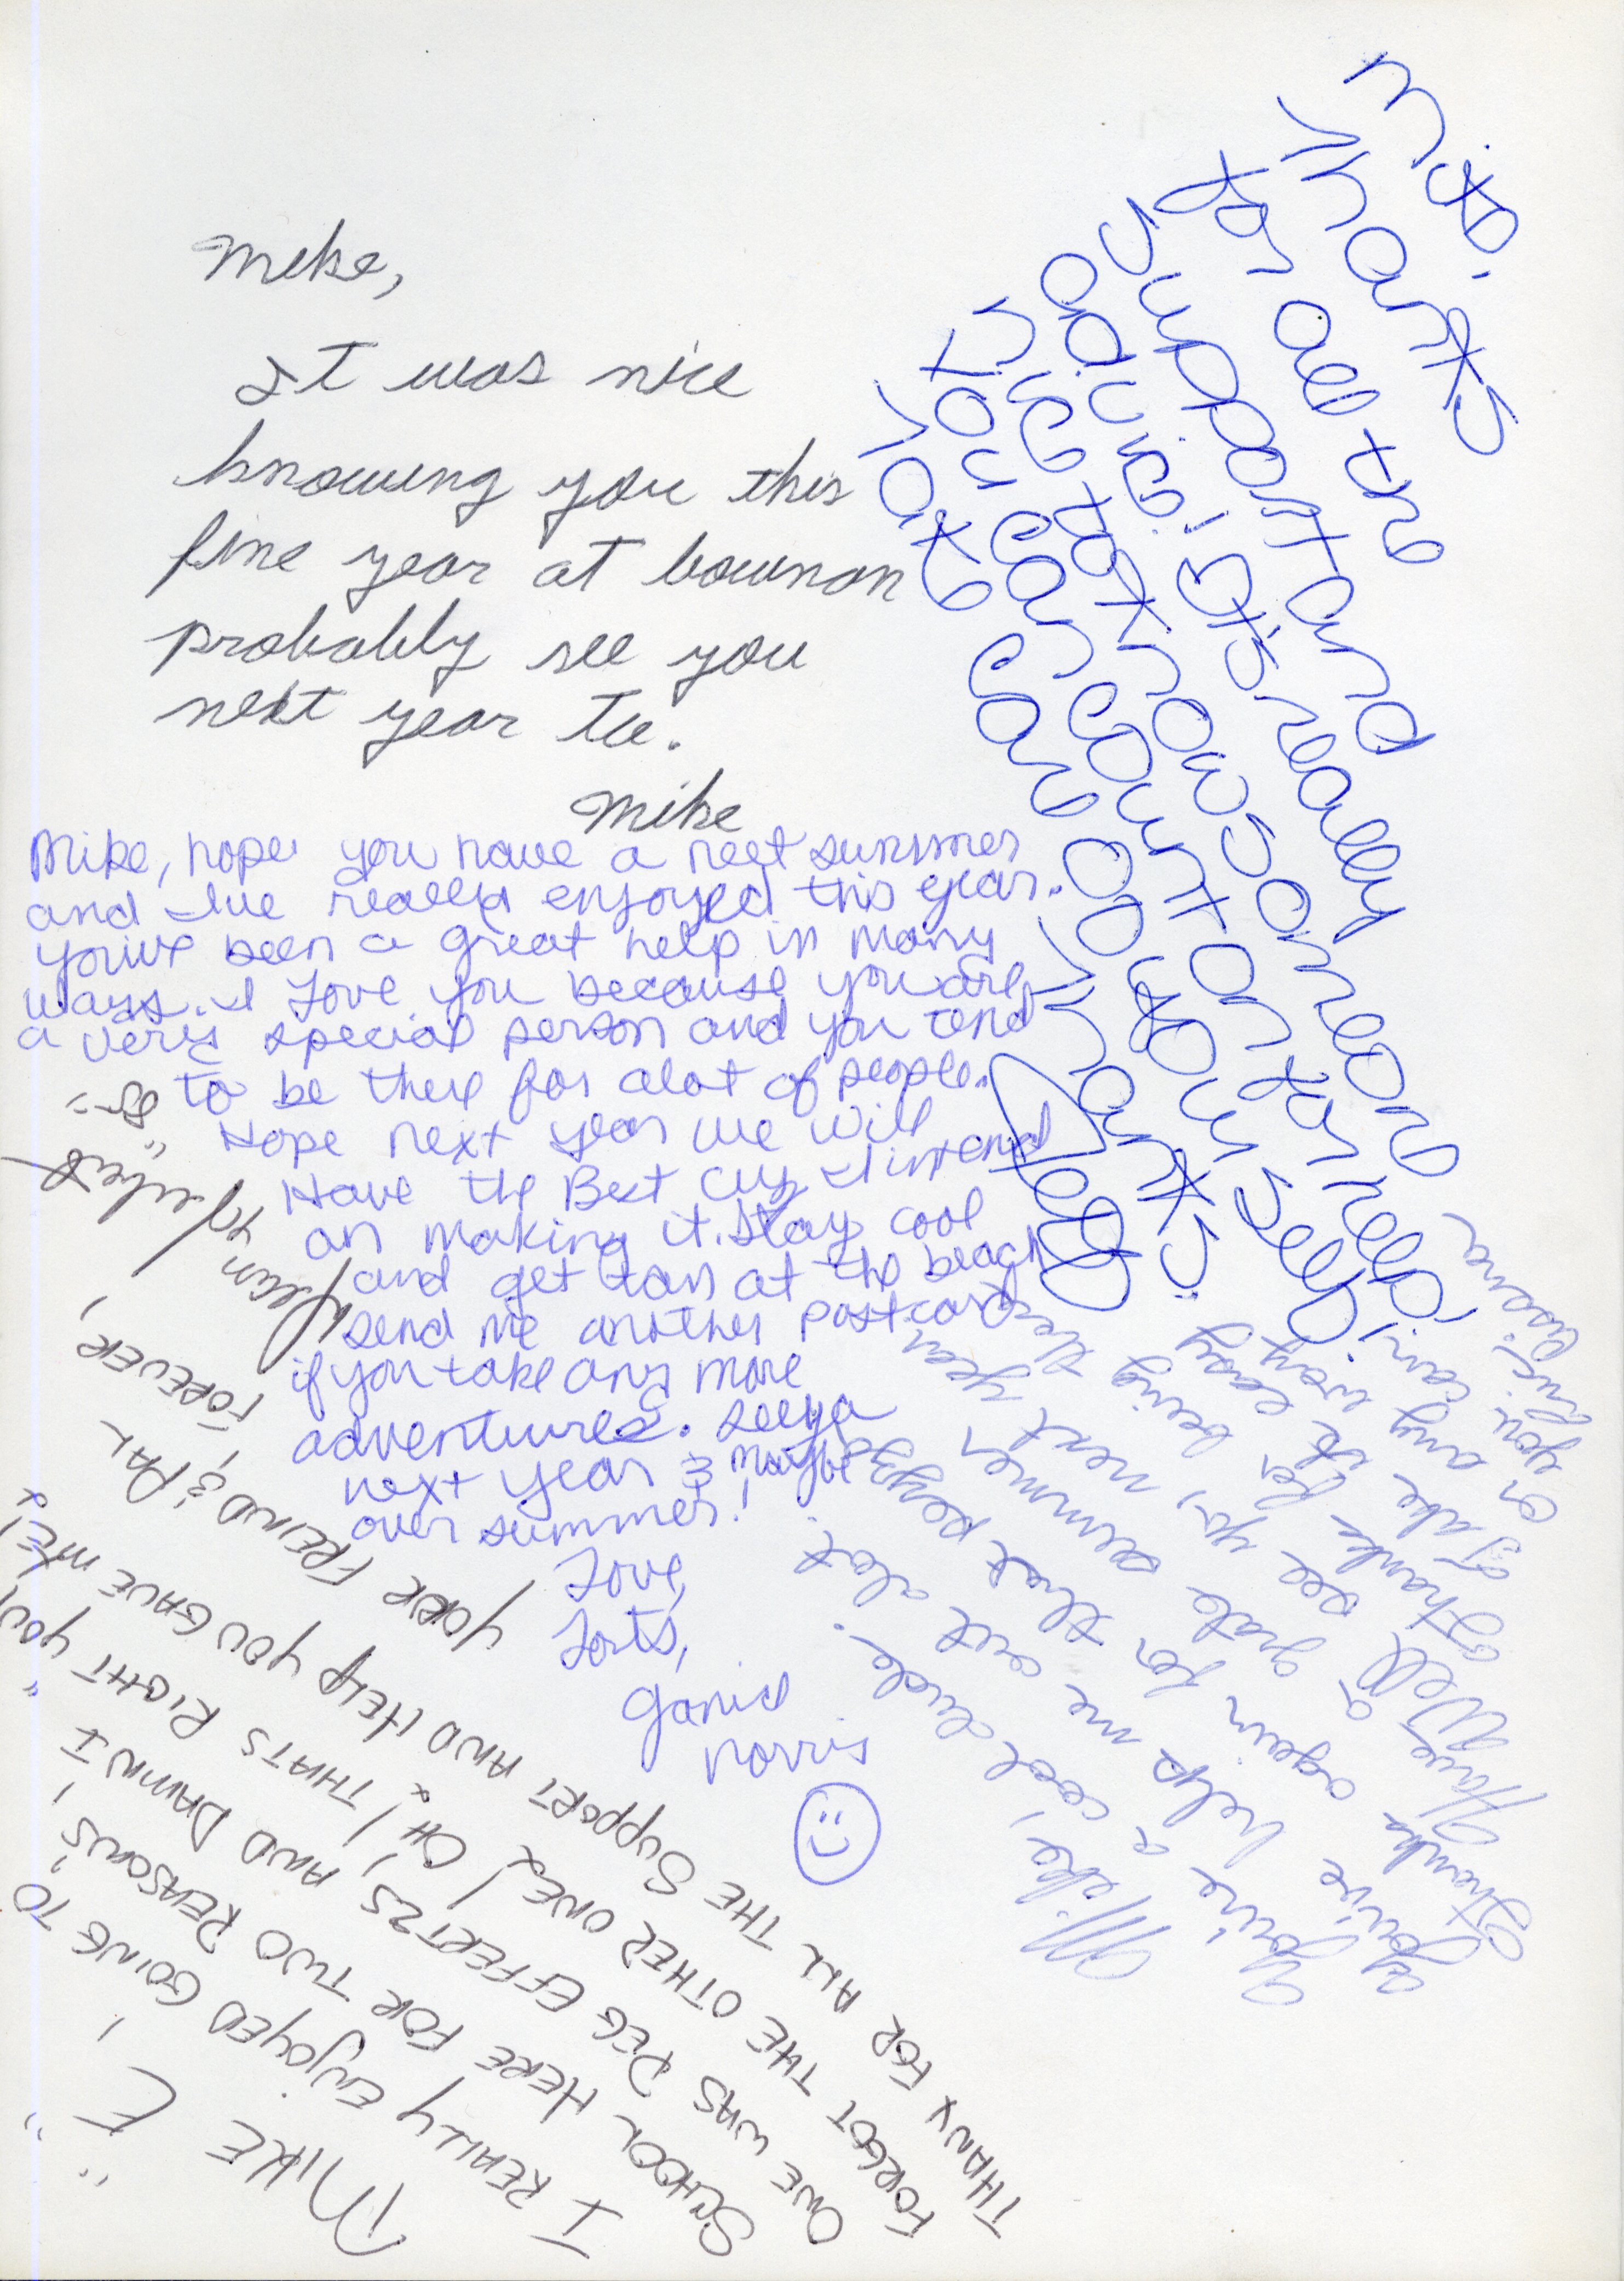 Mike,
It was nice
knowing you this
fine year at bowman
probably see you
next year to.
Mike
Mike,
Thanks
for all the
support and
advice! It's really
nice to know someone
you can count on for help!
Take care of yourself!
Thanks
Jeff
Mike, hope you have a neet summer
and I've really enjoyed this year.
you've been a great help in many
ways. I Love you because you are
a very special person and you tend
to be there for alot of people.
Hope next year we will
Have the Best
on making it. Stay cool
and get tan at the beach
send me another postcard
if you take any more
adventures. seeya
next year & maybe
over summer!
Love,
Lots,
Janie
Norris
Mike,
You're a cool dude!
You've help me out alot.
Thanks again for that
Have a great summer
Well see ya, next year
Thanks for being the
Take it easy
or any way
you can!
"MIKE E"
I REALLY ENJOYED GOING TO
SCHOOL HERE FOR TWO REASONS,
ONE WAS PEG EFFERTZS, AND DAMN I
FORGOT THE OTHER ONE! OH! THATS RIGHT YOU!
THANX FOR ALL THE SUPPORT AND HELP YOU GAVE ME!
YOUR FREIND & PAL
FOREVER,
"85"